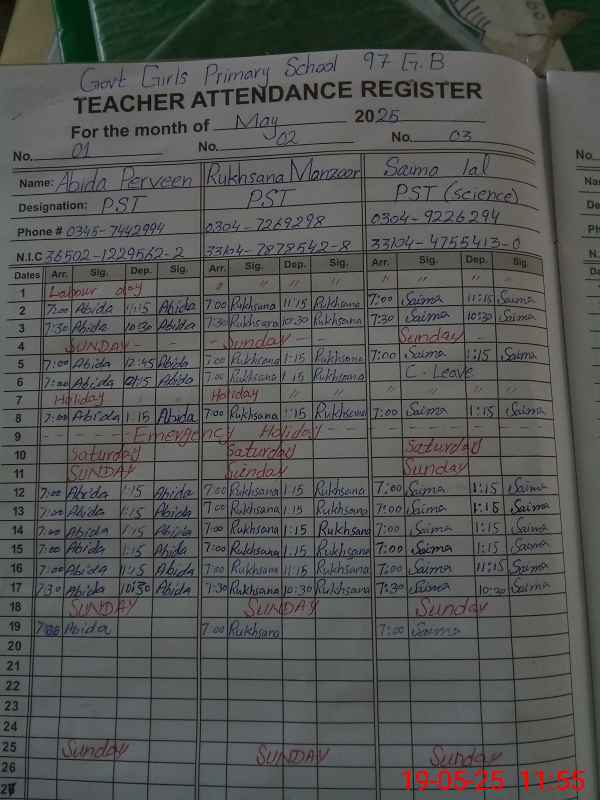 Govt Girls Primary School 97 G.B
TEACHER ATTENDANCE REGISTER
For the month of May 2025
No. 01 No. 02 No. 03
Name: Abida Perveen Rukhsana Manzoor Saima lal
Designation: PST PST PST (science)
Phone # 0345-7442994 0304-7269298 0304-9226294
N.I.C 36502-1229562-2 33104-7878542-8 33104-4755413-0
Dates Arr. Sig. Dep. Sig. Arr. Sig. Dep. Sig. Arr. Sig. Dep. Sig.
1 Labour day " " " " " " " "
2 7:00 Abida 11:15 Abida 7:00 Rukhsana 11:15 Rukhsana 7:00 Saima 11:15 Saima
3 7:30 Abida 10:30 Abida 7:30 Rukhsana 10:30 Rukhsana 7:30 Saima 10:30 Saima
4 - SUNDAY - - Sunday - - Sunday -
5 7:00 Abida 12:45 Abida 7:00 Rukhsana 1:15 Rukhsana 7:00 Saima 1:15 Saima
6 7:00 Abida Abida 7:00 Rukhsana 1:15 Rukhsana C-Leave
7 Holiday " " Holiday " " " " " "
8 7:00 Abida 1:15 Abida 7:00 Rukhsana 1:15 Rukhsana 7:00 Saima 1:15 Saima
9 - - - - - Emergency Holiday - - - - -
10 Saturday Saturday Saturday
11 SUNDAY Sunday Sunday
12 7:00 Abida 1:15 Abida 7:00 Rukhsana 1:15 Rukhsana 7:00 Saima 1:15 Saima
13 7:00 Abida 1:15 Abida 7:00 Rukhsana 1:15 Rukhsana 7:00 Saima 1:15 Saima
14 7:00 Abida 1:15 Abida 7:00 Rukhsana 1:15 Rukhsana 7:00 Saima 1:15 Saima
15 7:00 Abida 1:15 Abida 7:00 Rukhsana 1:15 Rukhsana 7:00 Saima 1:15 Saima
16 7:00 Abida 11:15 Abida 7:00 Rukhsana 11:15 Rukhsana 7:00 Saima 11:15 Saima
17 7:30 Abida 10:30 Abida 7:30 Rukhsana 10:30 Rukhsana 7:30 Saima 10:30 Saima
18 SUNDAY SUNDAY Sunday
19 7:00 Abida 7:00 Rukhsana 7:00 Saima
20
21
22
23
24
25 Sunday SUNDAY Sunday
26
27
19-05-25 11:55